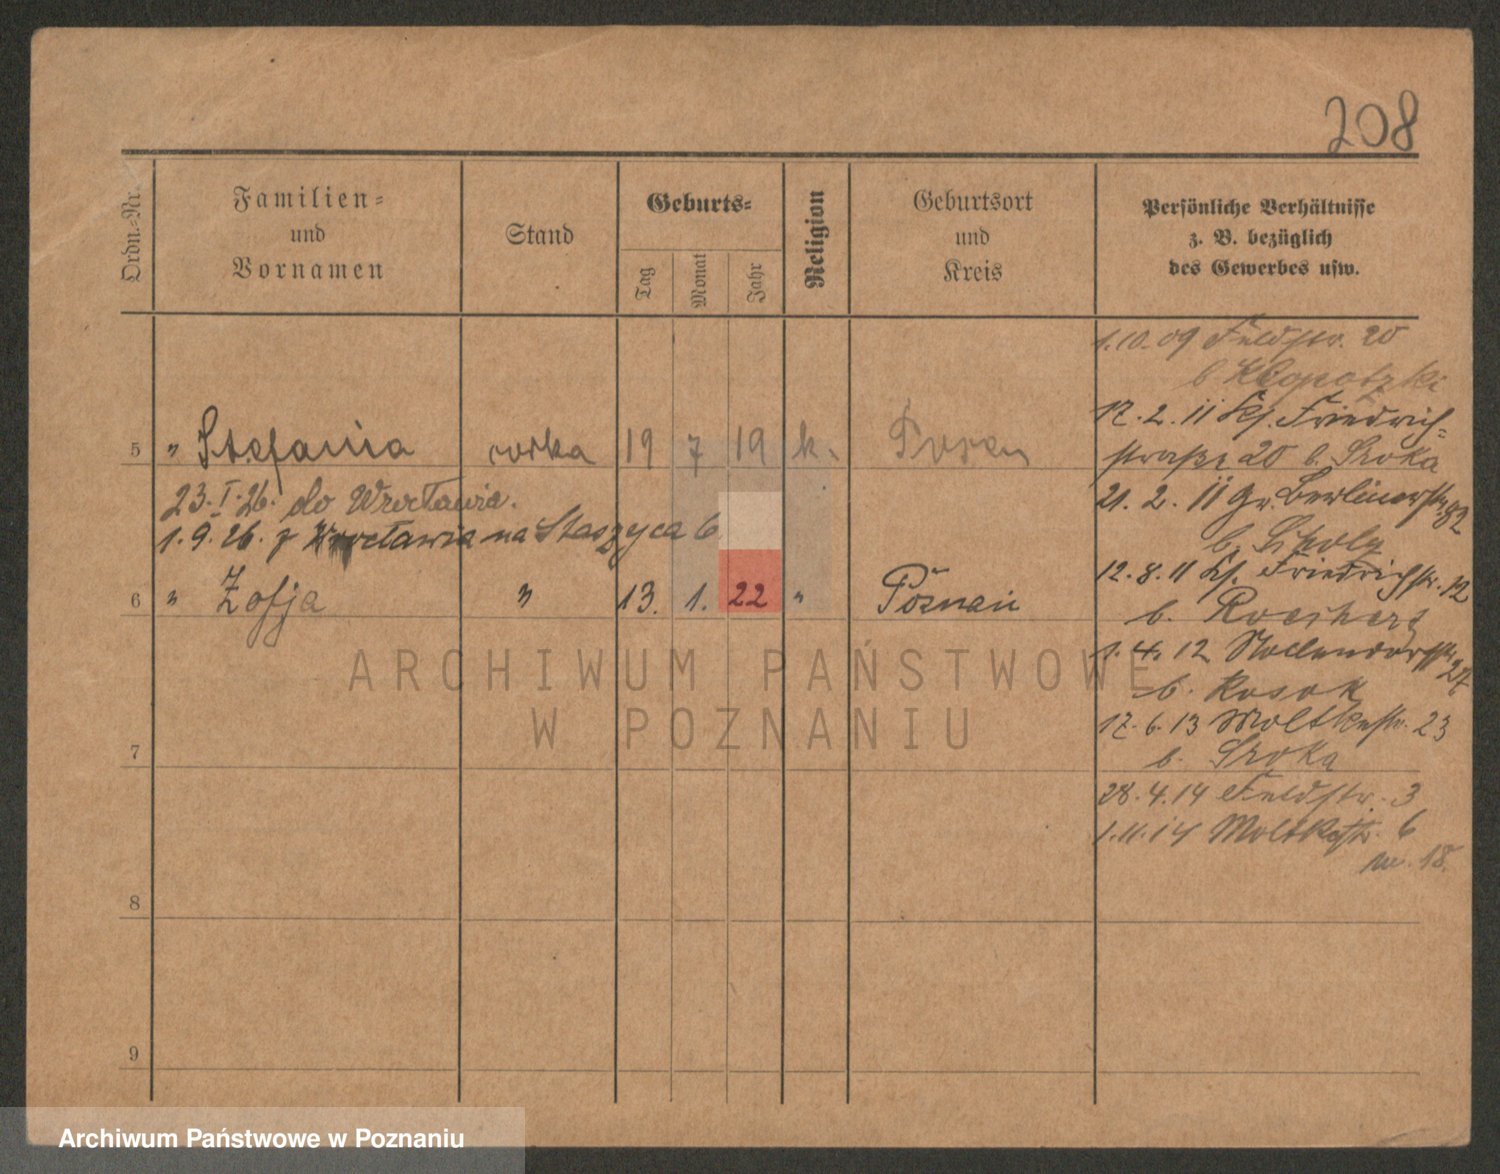 208
Ordn.-Nr.
Familien-
und
Vornamen
Stand
Geburts-
Tag
Monat
Jahr
Religion
Geburtsort
und
Kreis
Persönliche Verhältnisse
z. B. bezüglich
des Gewerbes usw.
5 " Stefania córka 19 7 19 k. Posen
23. I. 26. do Wrocławia.
1. 9. 26. z Wrocławia na Staszyca 6
6 " Zofja " 13. 1. 22 " Poznań
7
8
9
1.10.09 Feldstr. 20
b Klopotzki
17. 2. 11 Ks. Friedrich-
straße 20 b. Sroka
21. 2. 11 Gr. Berlinerstr. 82
b.
12. 8. 11 Ks. Friedrichstr. 12
b.
1. 4. 12 Nollendorfstr. 27
b. Kosak
17. 6. 13 Moltkestr. 23
b. Sroka
28. 4. 14 Feldstr. 3
1.11.14 Moltkestr. 6
w. 18.
ARCHIWUM PAŃSTWOWE
W POZNANIU
Archiwum Państwowe w Poznaniu